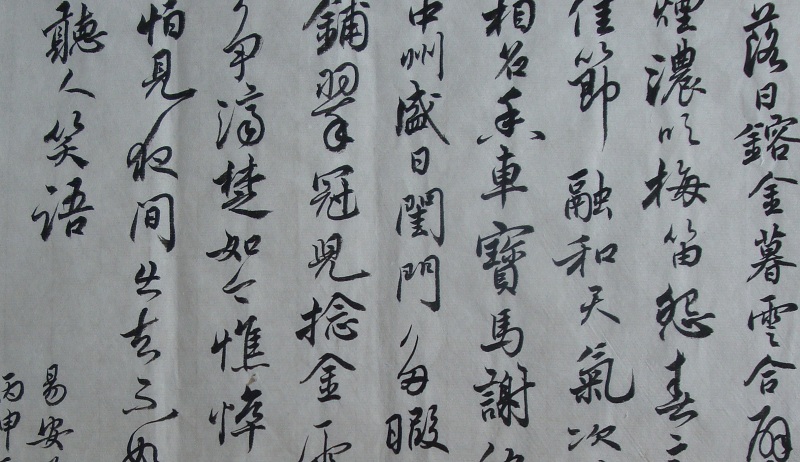 落日鎔金暮雲合
煙濃吹梅笛怨春
佳節融和天氣次
相名香車寶馬謝
中州盛日閨門多暇
鋪翠冠兒捻金雪
爭濟楚如今憔悴
怕見夜間出去不如
聽人笑語
易安
丙申